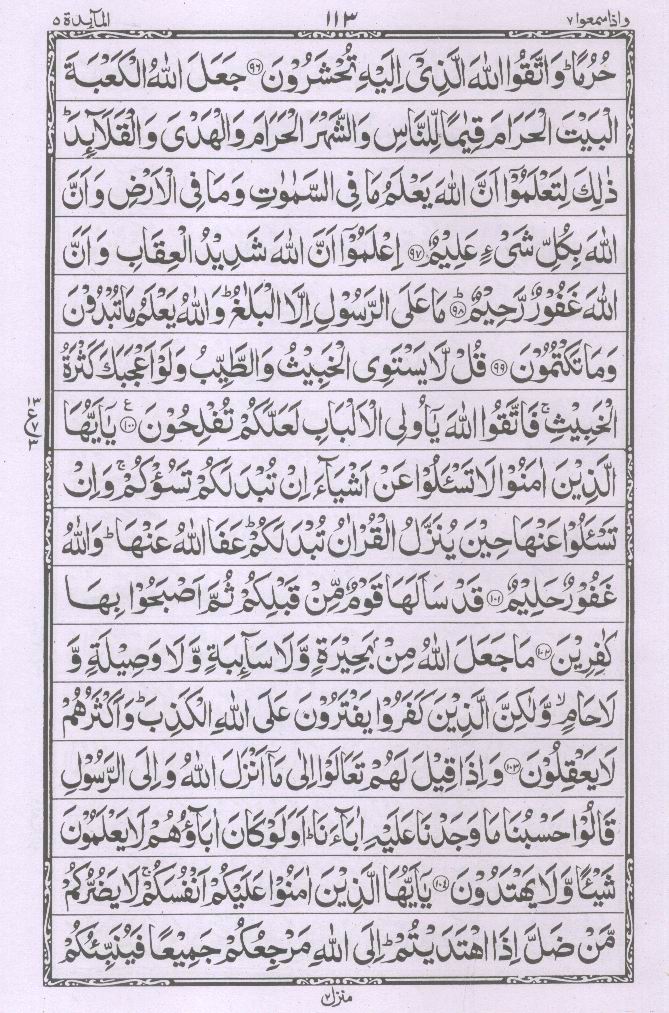 واذاسمعوا ٧ ١١٣ المآئدة ٥
حُرُمًا ؕ وَاتَّقُوا اللّٰهَ الَّذِىْۤ اِلَيْهِ تُحْشَرُوْنَ ﴿۹۶﴾ جَعَلَ اللّٰهُ الْكَعْبَةَ
الْبَيْتَ الْحَرَامَ قِيٰمًا لِّلنَّاسِ وَالشَّهْرَ الْحَرَامَ وَالْهَدْىَ وَالْقَلَآٮِٕدَ ؕ
ذٰلِكَ لِتَعْلَمُوْۤا اَنَّ اللّٰهَ يَعْلَمُ مَا فِى السَّمٰوٰتِ وَمَا فِى الْاَرْضِ وَاَنَّ
اللّٰهَ بِكُلِّ شَىْءٍ عَلِيْمٌ ﴿۹۷﴾ اِعْلَمُوْۤا اَنَّ اللّٰهَ شَدِيْدُ الْعِقَابِ وَاَنَّ
اللّٰهَ غَفُوْرٌ رَّحِيْمٌ ؕ﴿۹۸﴾ مَا عَلَى الرَّسُوْلِ اِلَّا الْبَلٰغُ ؕ وَاللّٰهُ يَعْلَمُ مَا تُبْدُوْنَ
وَمَا تَكْتُمُوْنَ ﴿۹۹﴾ قُلْ لَّا يَسْتَوِى الْخَبِيْثُ وَالطَّيِّبُ وَلَوْ اَعْجَبَكَ كَثْرَةُ
الْخَبِيْثِ ۚ فَاتَّقُوا اللّٰهَ يٰۤاُولِى الْاَلْبَابِ لَعَلَّكُمْ تُفْلِحُوْنَ ﴿۱۰۰﴾ ع يٰۤاَيُّهَا
١٣ ع ٧ ٣
الَّذِيْنَ اٰمَنُوْا لَا تَسْـَٔلُوْا عَنْ اَشْيَآءَ اِنْ تُبْدَ لَكُمْ تَسُؤْكُمْ ۚ وَاِنْ
تَسْـَٔلُوْا عَنْهَا حِيْنَ يُنَزَّلُ الْقُرْاٰنُ تُبْدَ لَكُمْ ؕ عَفَا اللّٰهُ عَنْهَا ؕ وَاللّٰهُ
غَفُوْرٌ حَلِيْمٌ ﴿۱۰۱﴾ قَدْ سَاَلَهَا قَوْمٌ مِّنْ قَبْلِكُمْ ثُمَّ اَصْبَحُوْا بِهَا
كٰفِرِيْنَ ﴿۱۰۲﴾ مَا جَعَلَ اللّٰهُ مِنْۢ بَحِيْرَةٍ وَّلَا سَآٮِٕبَةٍ وَّلَا وَصِيْلَةٍ وَّ
لَا حَامٍ ۙ وَّلٰكِنَّ الَّذِيْنَ كَفَرُوْا يَفْتَرُوْنَ عَلَى اللّٰهِ الْكَذِبَ ؕ وَاَكْثَرُهُمْ
لَا يَعْقِلُوْنَ ﴿۱۰۳﴾ وَاِذَا قِيْلَ لَهُمْ تَعَالَوْا اِلٰى مَاۤ اَنْزَلَ اللّٰهُ وَاِلَى الرَّسُوْلِ
قَالُوْا حَسْبُنَا مَا وَجَدْنَا عَلَيْهِ اٰبَآءَنَا ؕ اَوَلَوْ كَانَ اٰبَآؤُهُمْ لَا يَعْلَمُوْنَ
شَيْـًٔا وَّلَا يَهْتَدُوْنَ ﴿۱۰۴﴾ يٰۤاَيُّهَا الَّذِيْنَ اٰمَنُوْا عَلَيْكُمْ اَنْفُسَكُمْ ۚ لَا يَضُرُّكُمْ
مَّنْ ضَلَّ اِذَا اهْتَدَيْتُمْ ؕ اِلَى اللّٰهِ مَرْجِعُكُمْ جَمِيْعًا فَيُنَبِّئُكُمْ
منزل ٢